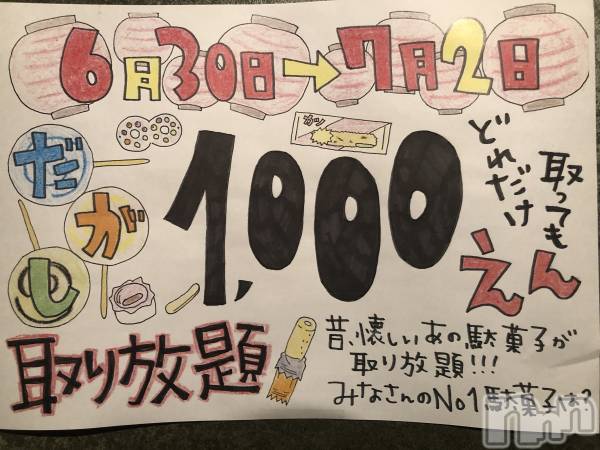 6月30日→7月2日
だがし
カツ
1,000えん
どれだけ
取っても
取り放題
昔、懐しいあの駄菓子が
取り放題!!!
みなさんのNo1駄菓子は?